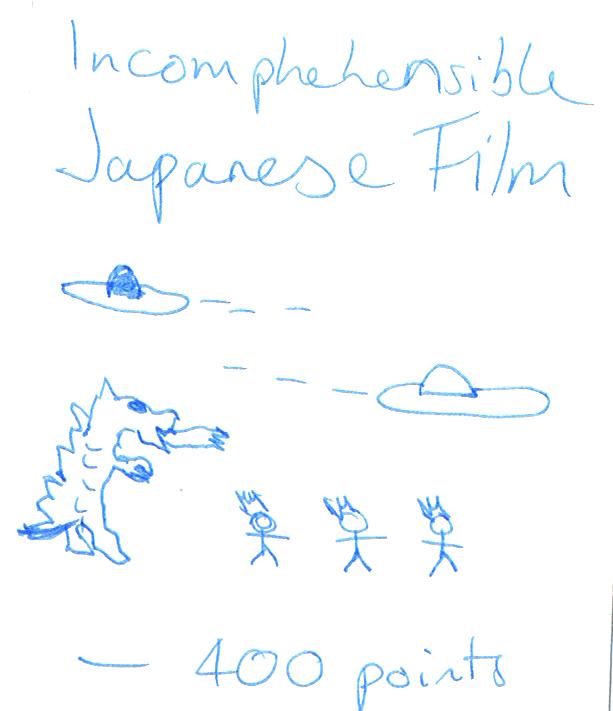 Incomphehensible
Japanese Film
— 400 points